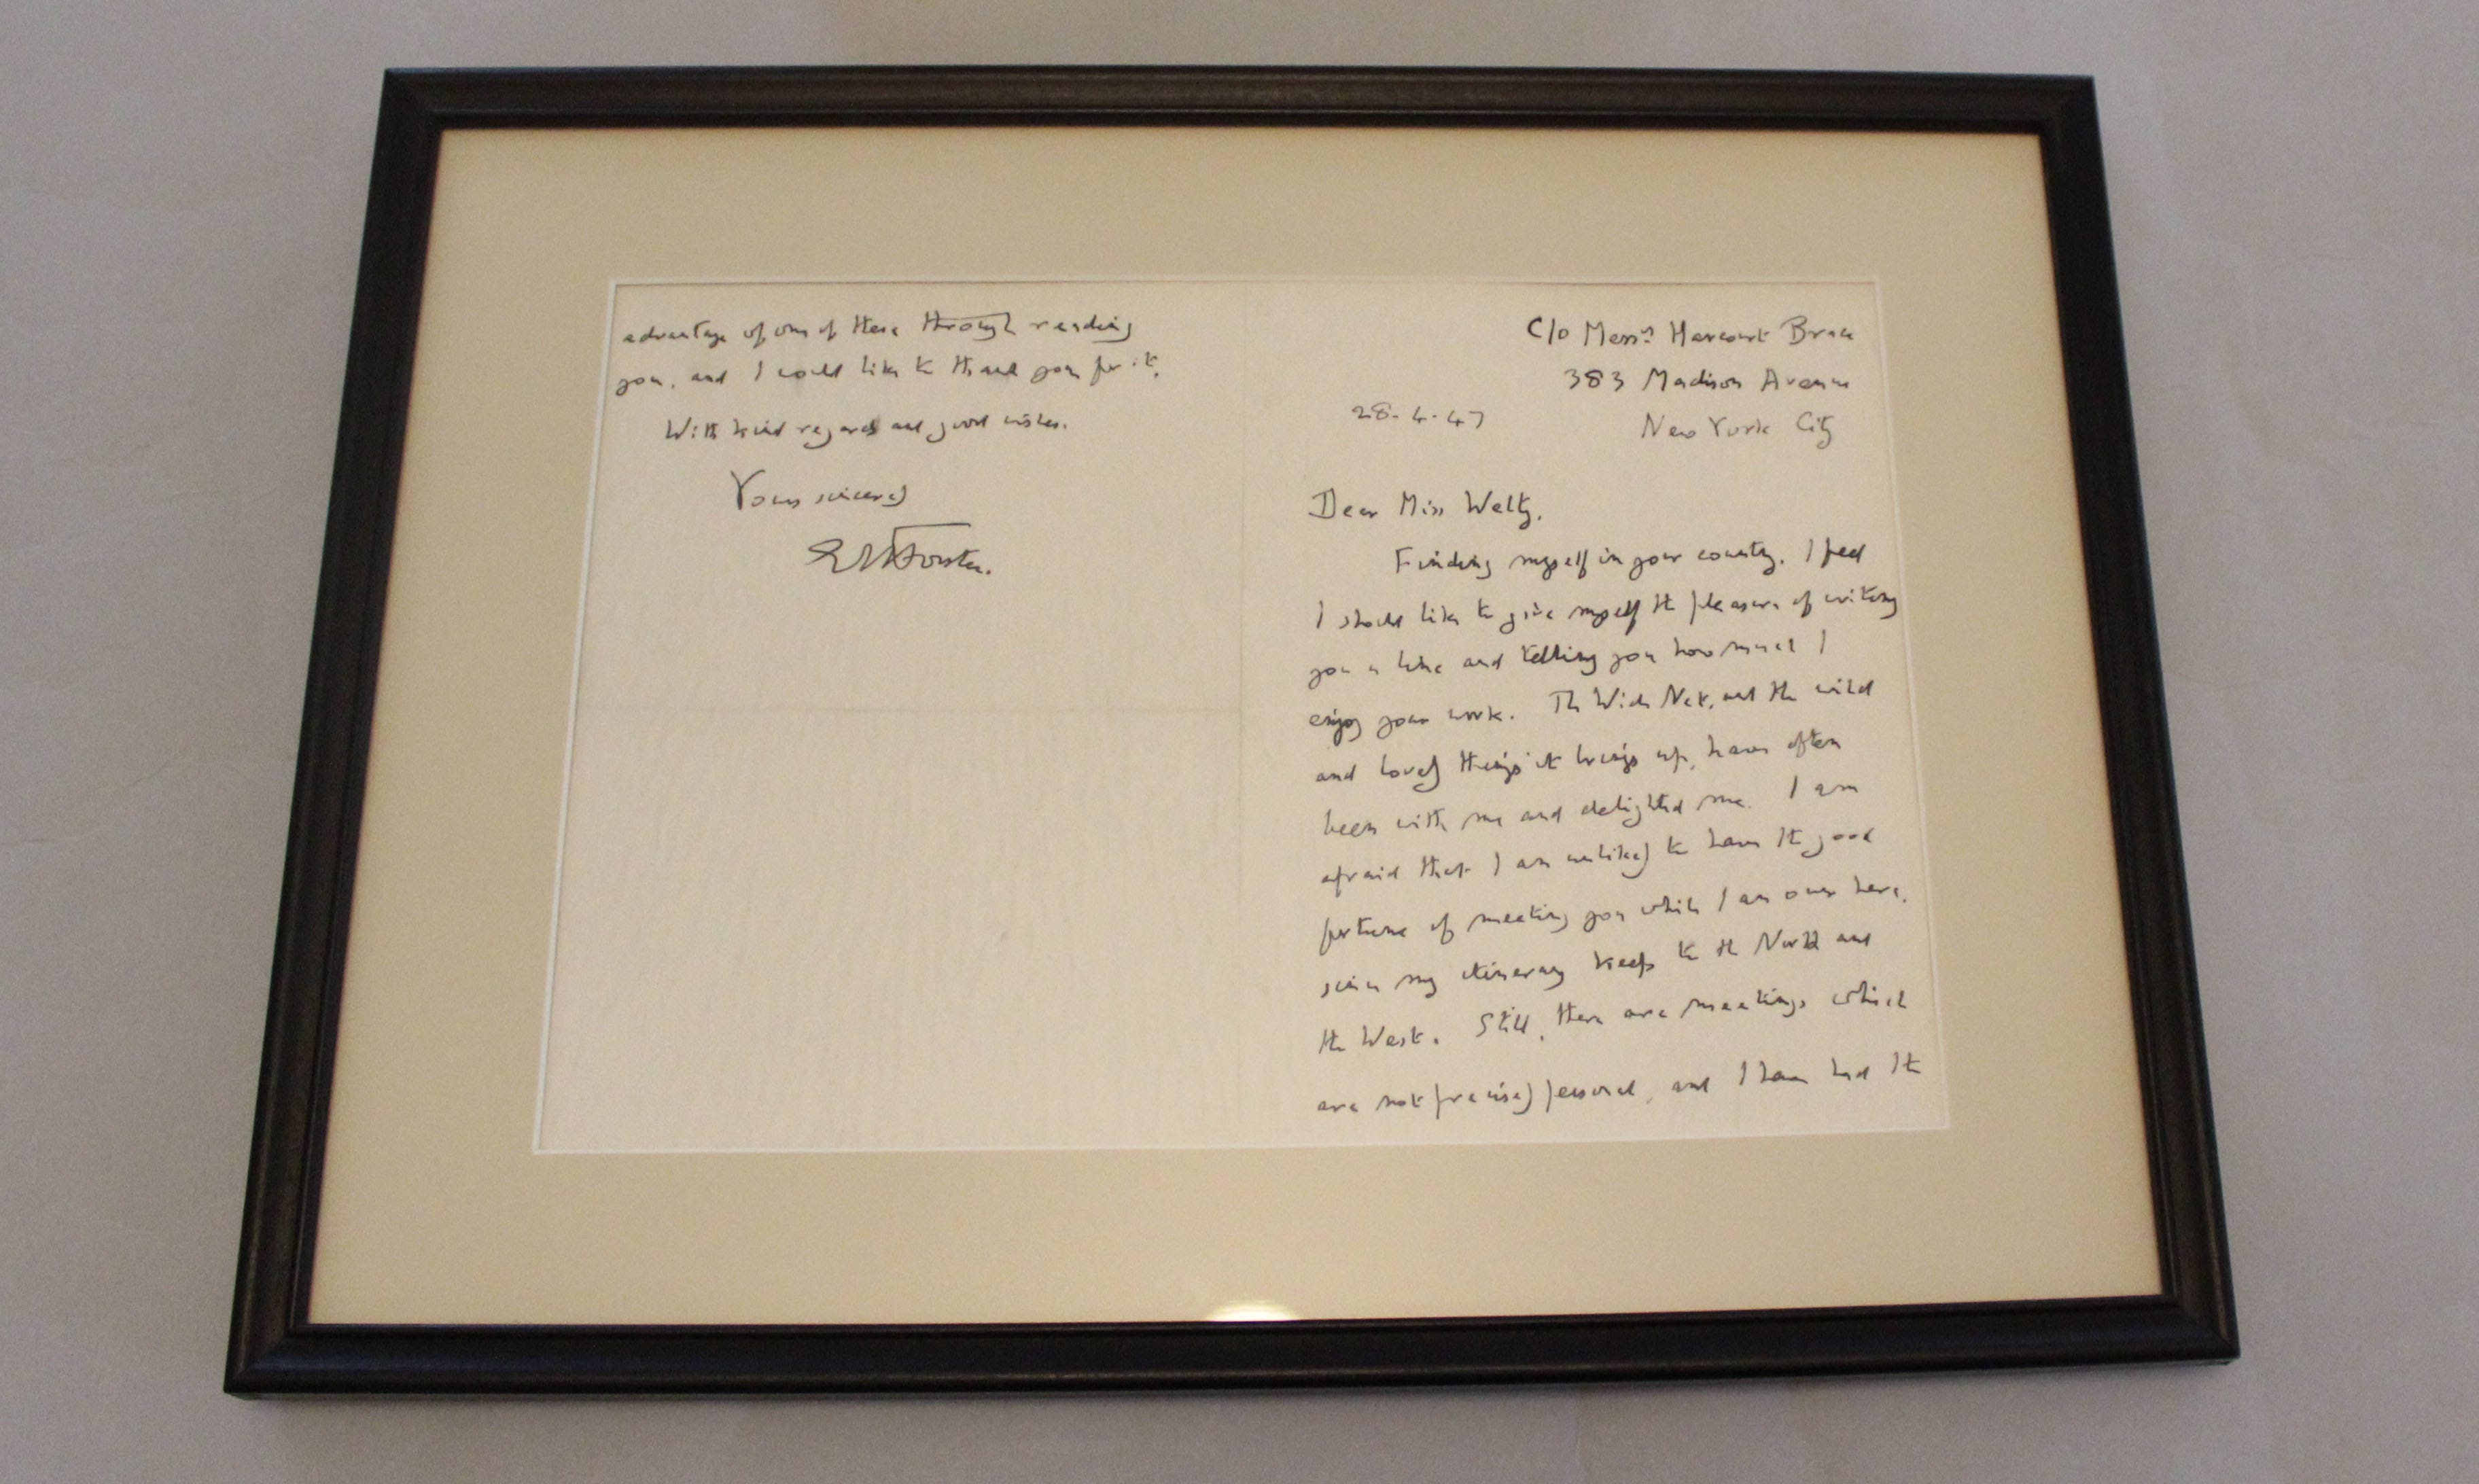 C/o Messrs Harcourt Brace
383 Madison Avenue
28-4-47
New York City
Dear Miss Welty,
Finding myself in your country, I feel
I should like to give myself the pleasure of writing
you a line and telling you how much I
enjoy your work. The Wide Net, and the wild
and lovely things it brings up, have often
been with me and delighted me. I am
afraid that I am unlikely to have the good
fortune of meeting you while I am over here,
since my itinerary keeps to the North and
the West. Still, there are meetings which
are not precisely personal, and I have had the
advantage of one of these through reading
you, and I would like to thank you for it.
With kind regards and good wishes.
Yours sincerely
EM Forster.